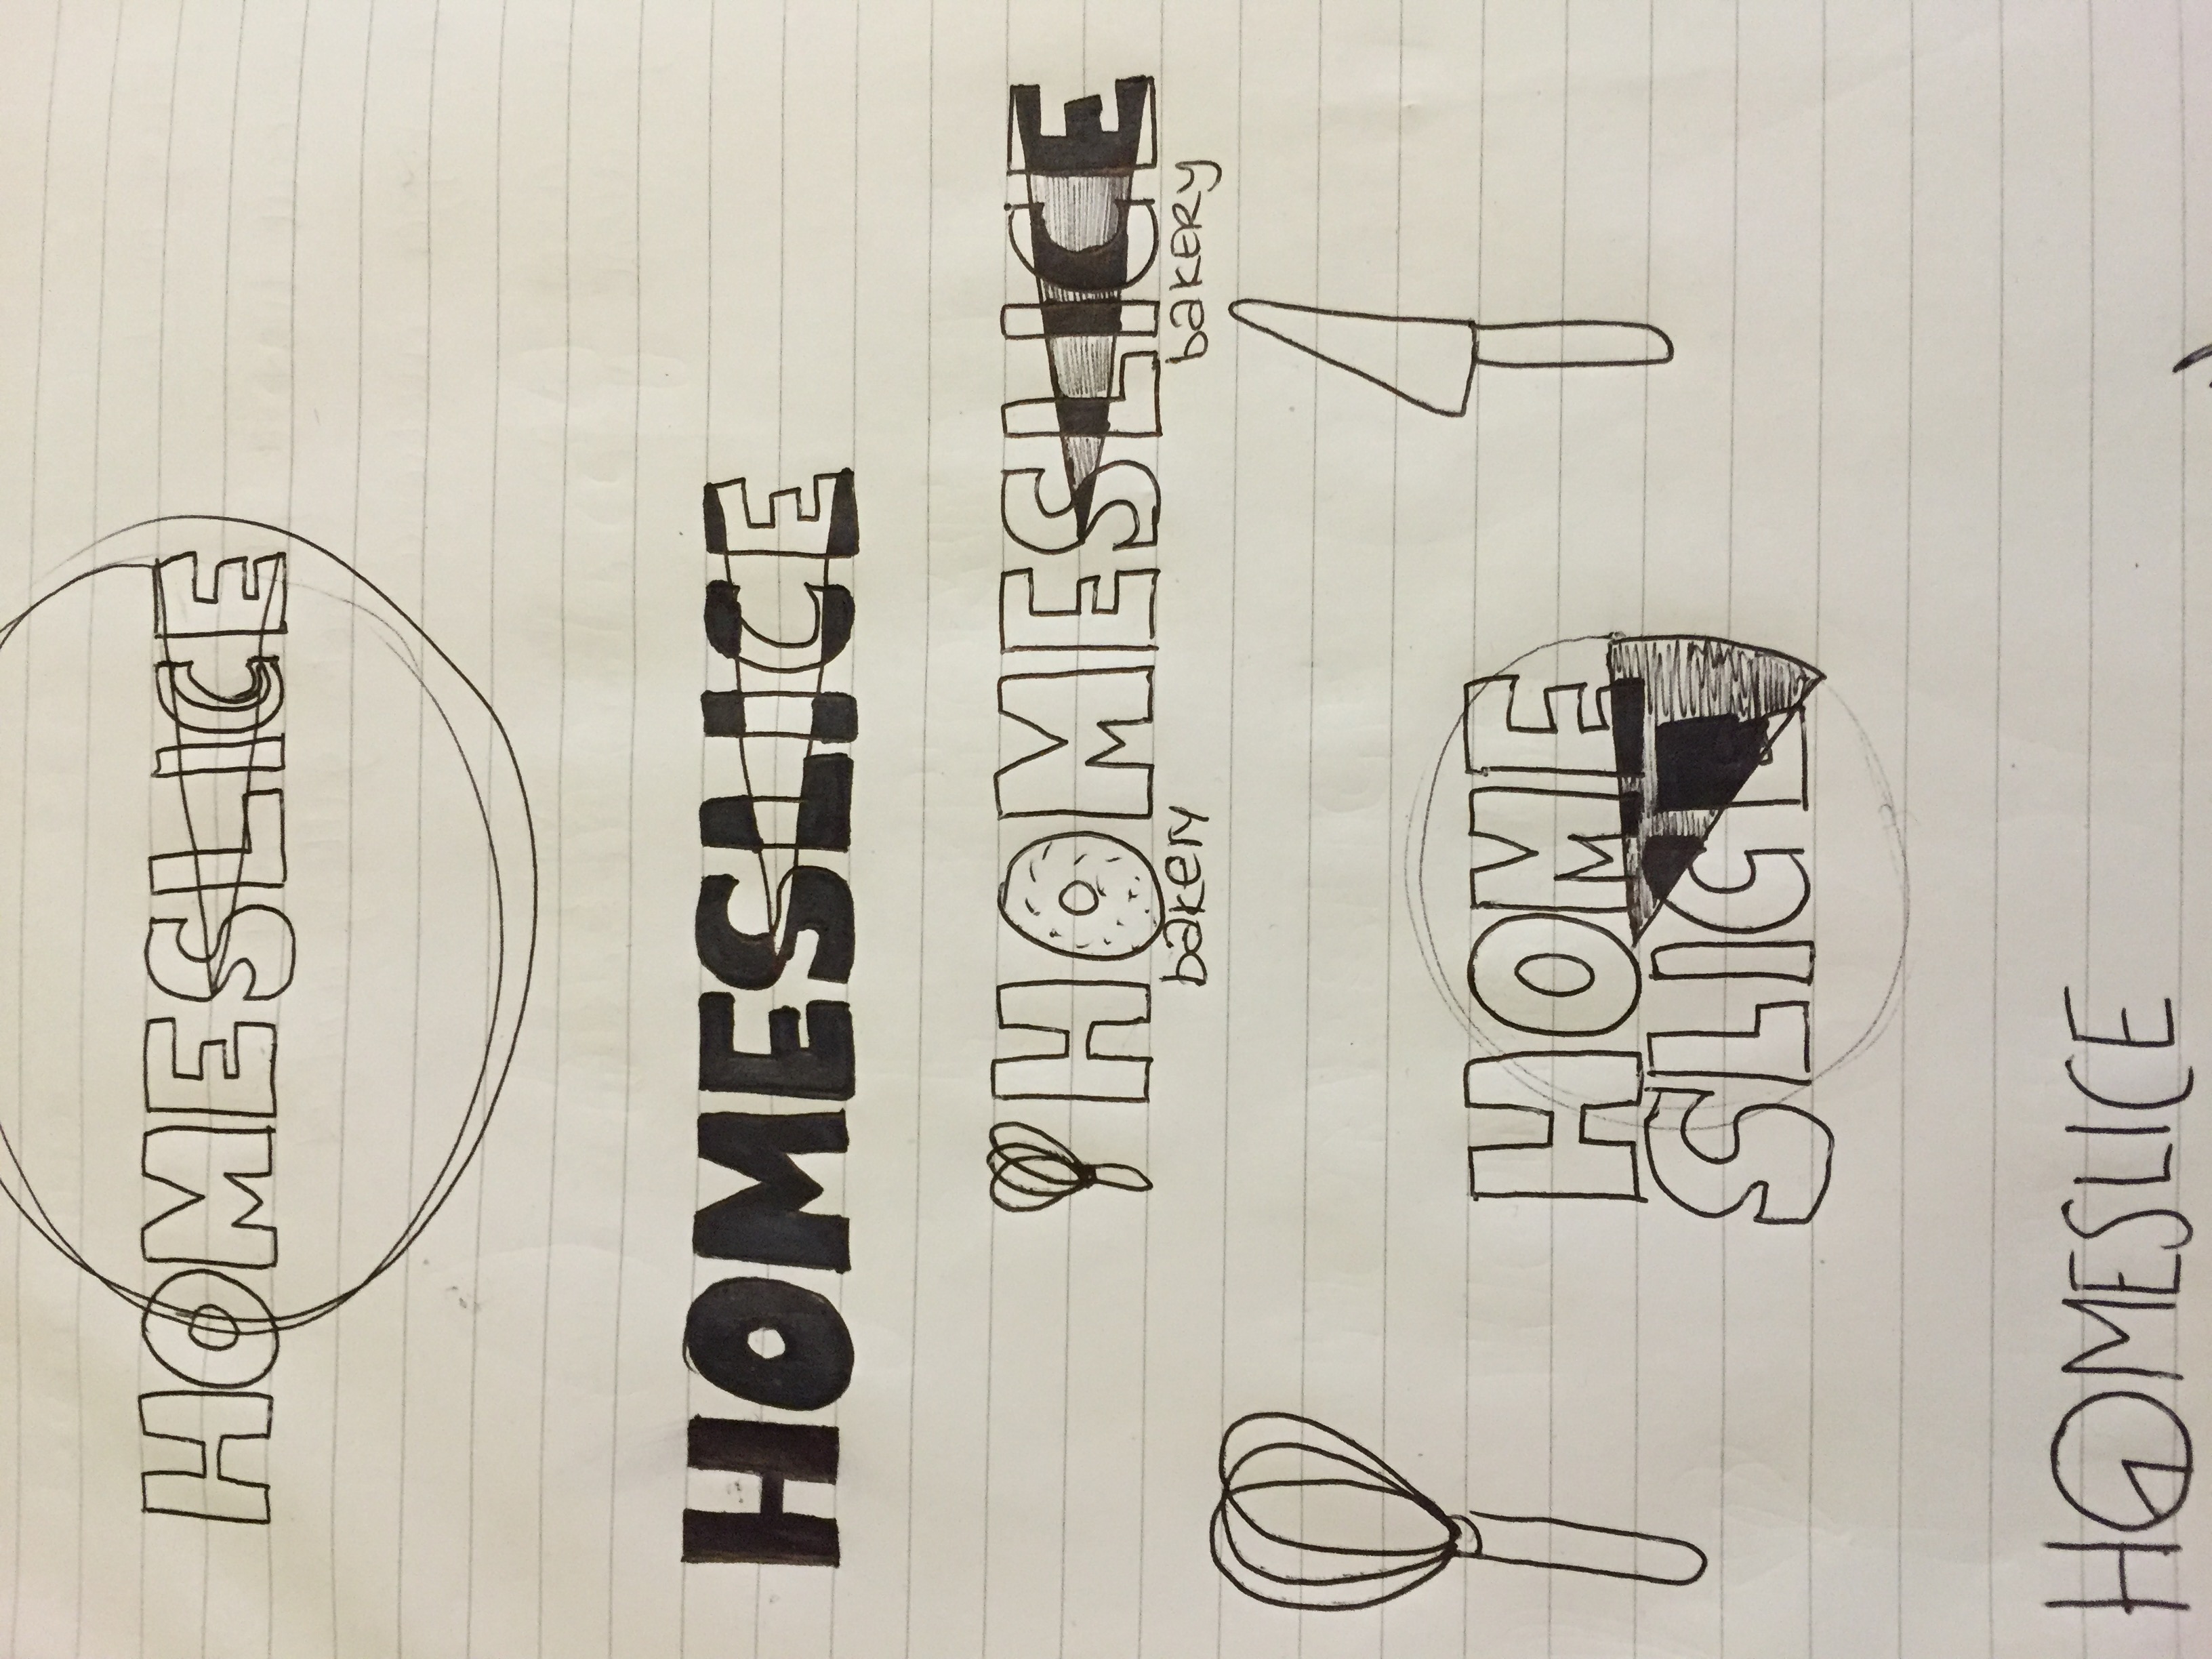 HOMESLICE
HOMESLICE
HOMESLICE
bakery bakery
HOME
SLICE
HOMESLICE